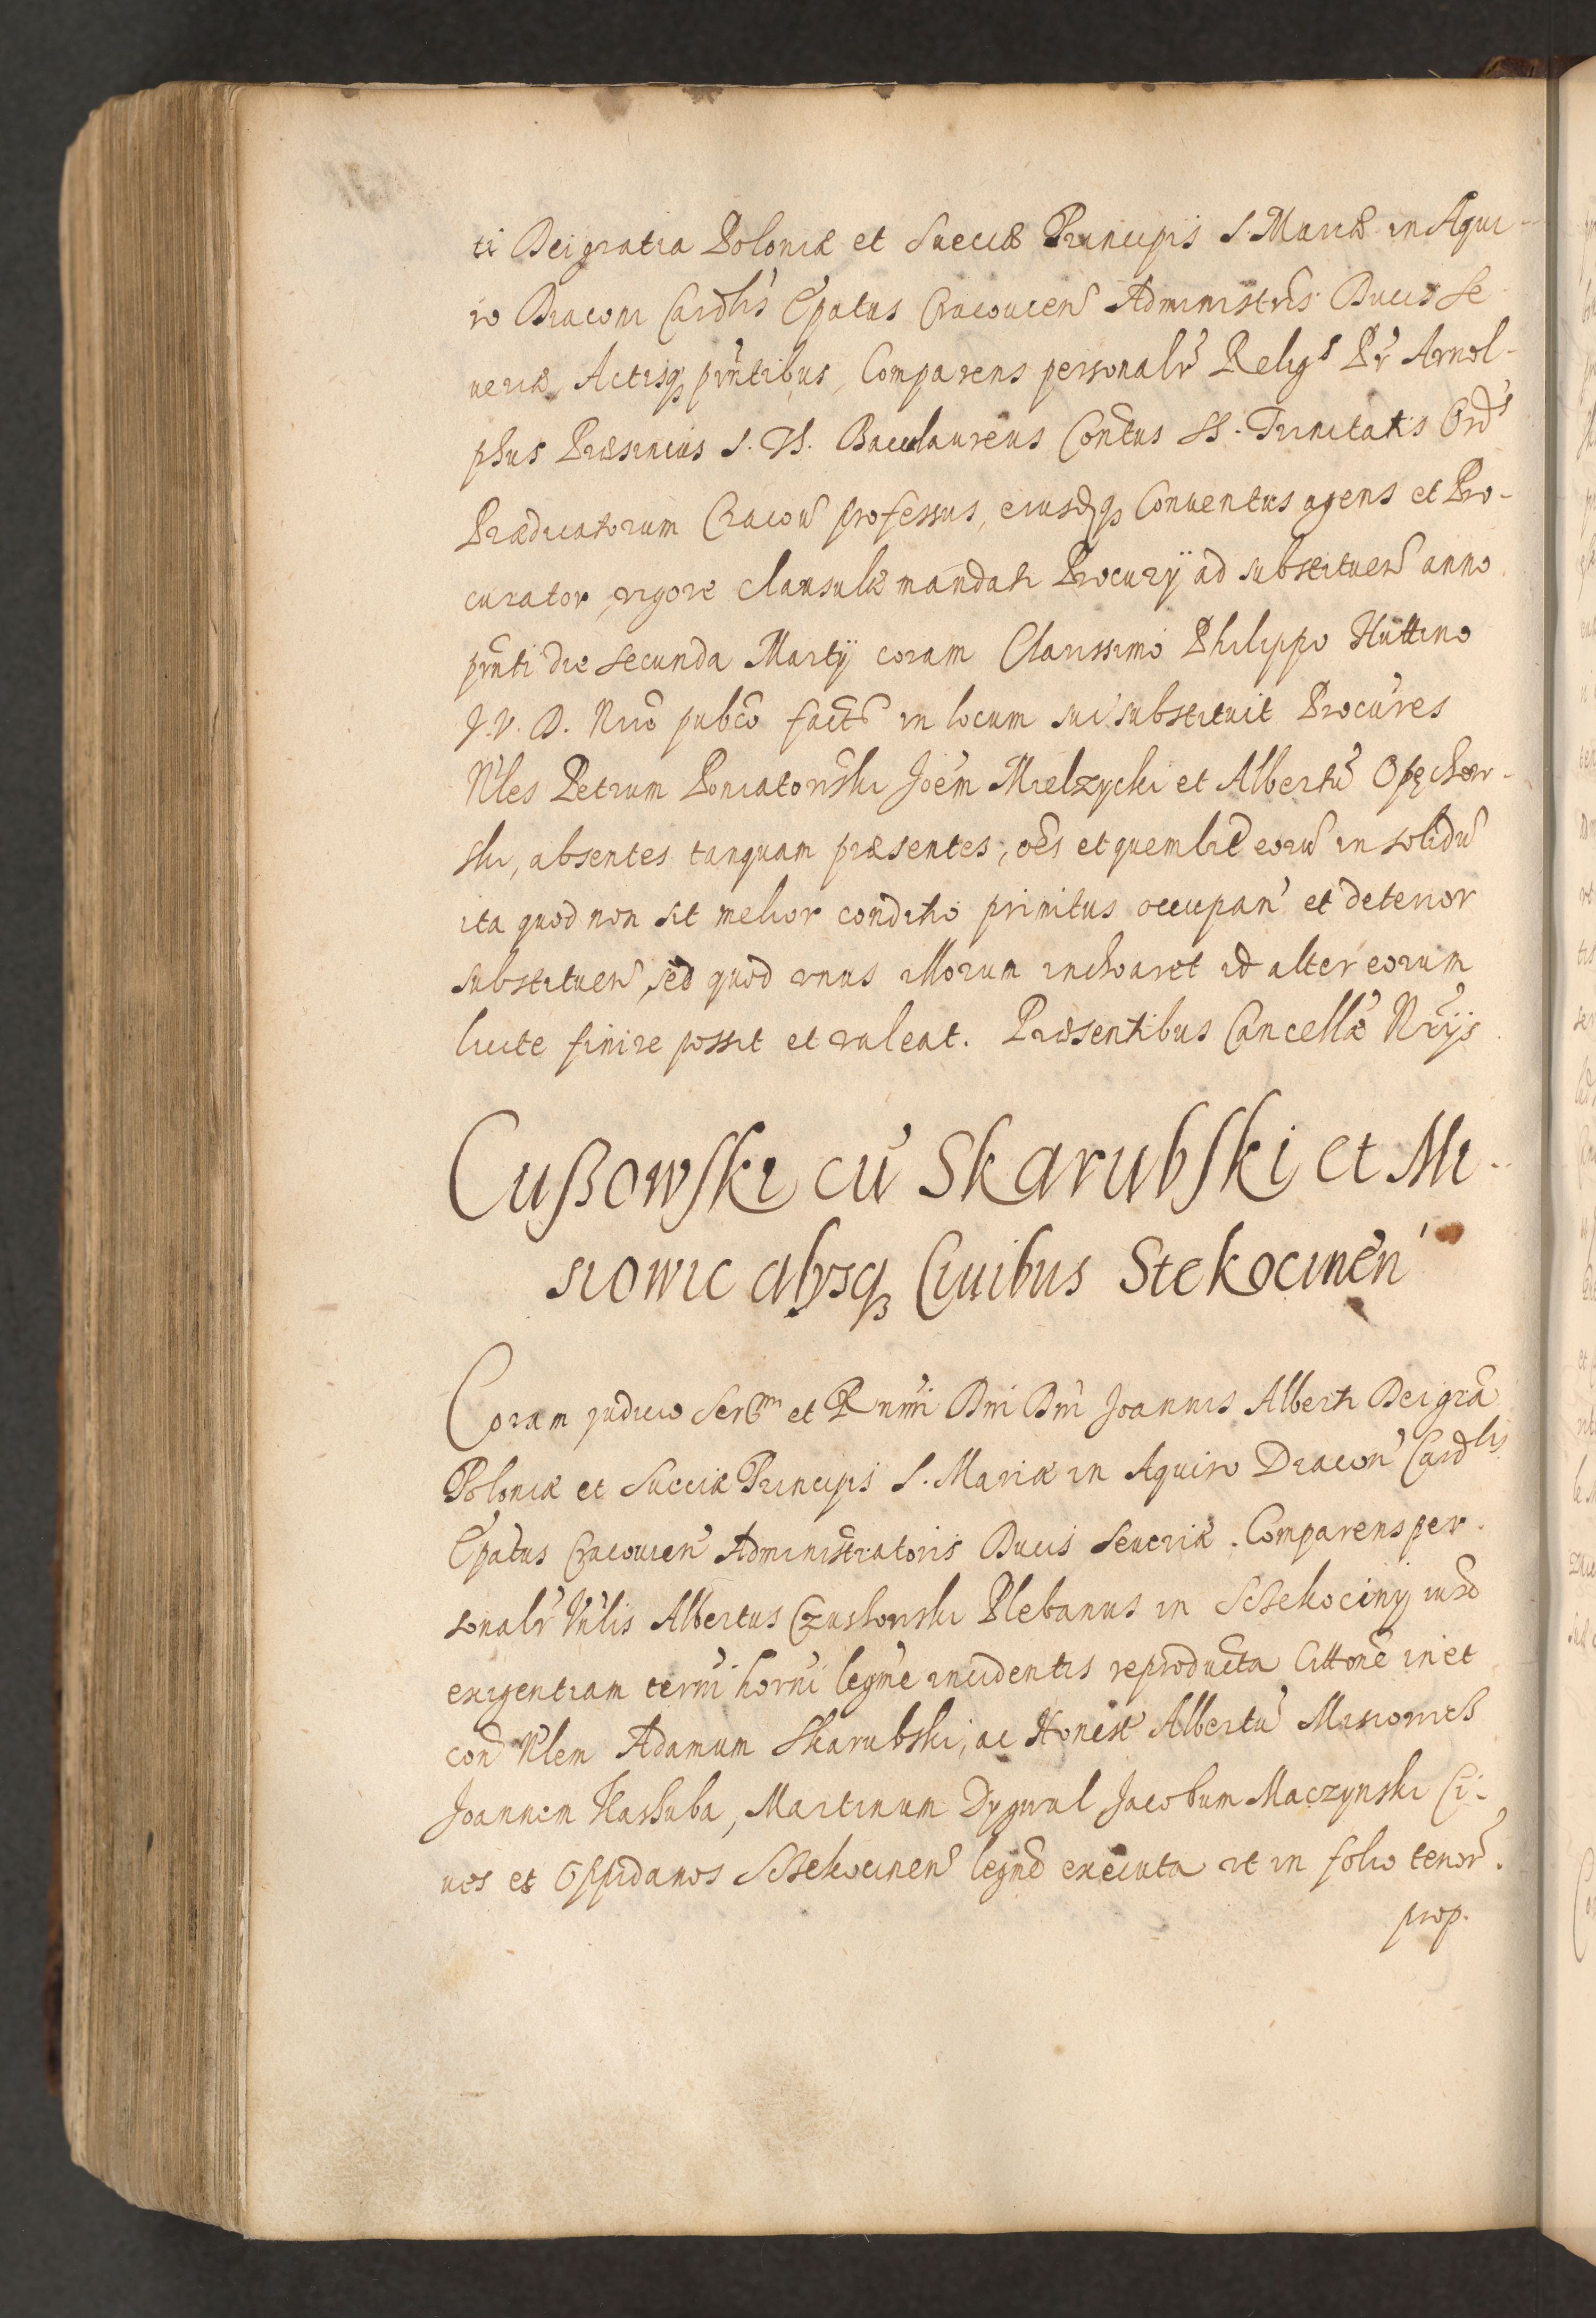 ti Dei gratia Poloniæ et Sueciæ Principis S. Mariæ in Aqui-
ro Diaconi Cardlis Epatus Cracouien Administris Ducis Se
ueriæ, Actisq pn̄tibus, Comparens personalr Religs Pr Arnol-
phus S. Th. Baccalaureus Contus SS. Trinitatis Ords
Prædicatorum Cracou professus, eiusdq Conuentus agens et Pro-
curator, vigore clausulæ mandati Procurÿ ad substituen anno
pn̄ti die secunda Martÿ coram Clarissimo Philippo Huttino
J. V. D. Nrio pubco facti in locum sui substituit Procures
Nles Petrum Poniatowski Joem Mielzycki et Albertū Opęchow-
ski, absentes tanquam præsentes, oēs et quemlid eorū in solidū
ita quod non sit melior conditio primitus occupan et deterior
substituen, sed quod vnus illorum inchoaret id alter eorum
licite finire possit et valeat. Præsentibus Cancellæ Nrÿs
Cußowski cū Skarubski et Mi-
siowic alÿsq Ciuibus Stekocinen
Coram judicio Sermi et Rnmi Dni Dni Joannis Alberti Dei gra
Poloniæ et Sueciæ Principis S. Mariæ in Aquiro Diacon Cardlis
Epatus Cracouien Administratoris Ducis Seueriæ. Comparens per
sonalr Vnlis Albertus Czuchowski Plebanus in Sczekociny iuxd
exigentiam termi horni legme incidentis reproducta Cittone in et
con Nlem Adamum Skarubski, ac Honest Albertū Misiowich
Joannem Kashuba, Martinum Dygwal Jacobum Maczynski Ci-
ues et Oppidanos Sczekocinen legme executa vt in folio tenor.
prop.